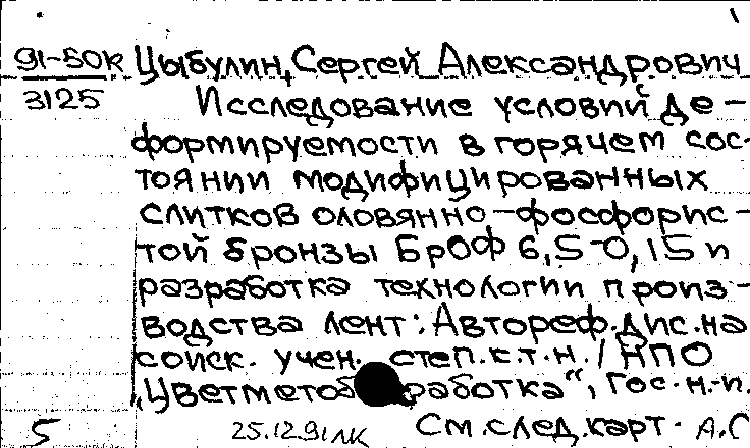 91-50к Цыбулин, Сергей Александрович
3125 Исследование условий де-
формируемости в горячем сос-
тоянии модифицированных
слитков оловянно-фосфорис-
той бронзы БрОФ 6,5-0,15 и
разработка технологии произ-
водства лент: Автореф. дис. на
соиск. учен. степ. к.т.н. / НПО
„Цветметобработка“, Гос. н.-и.
5 25.12.91 См. след. карт.